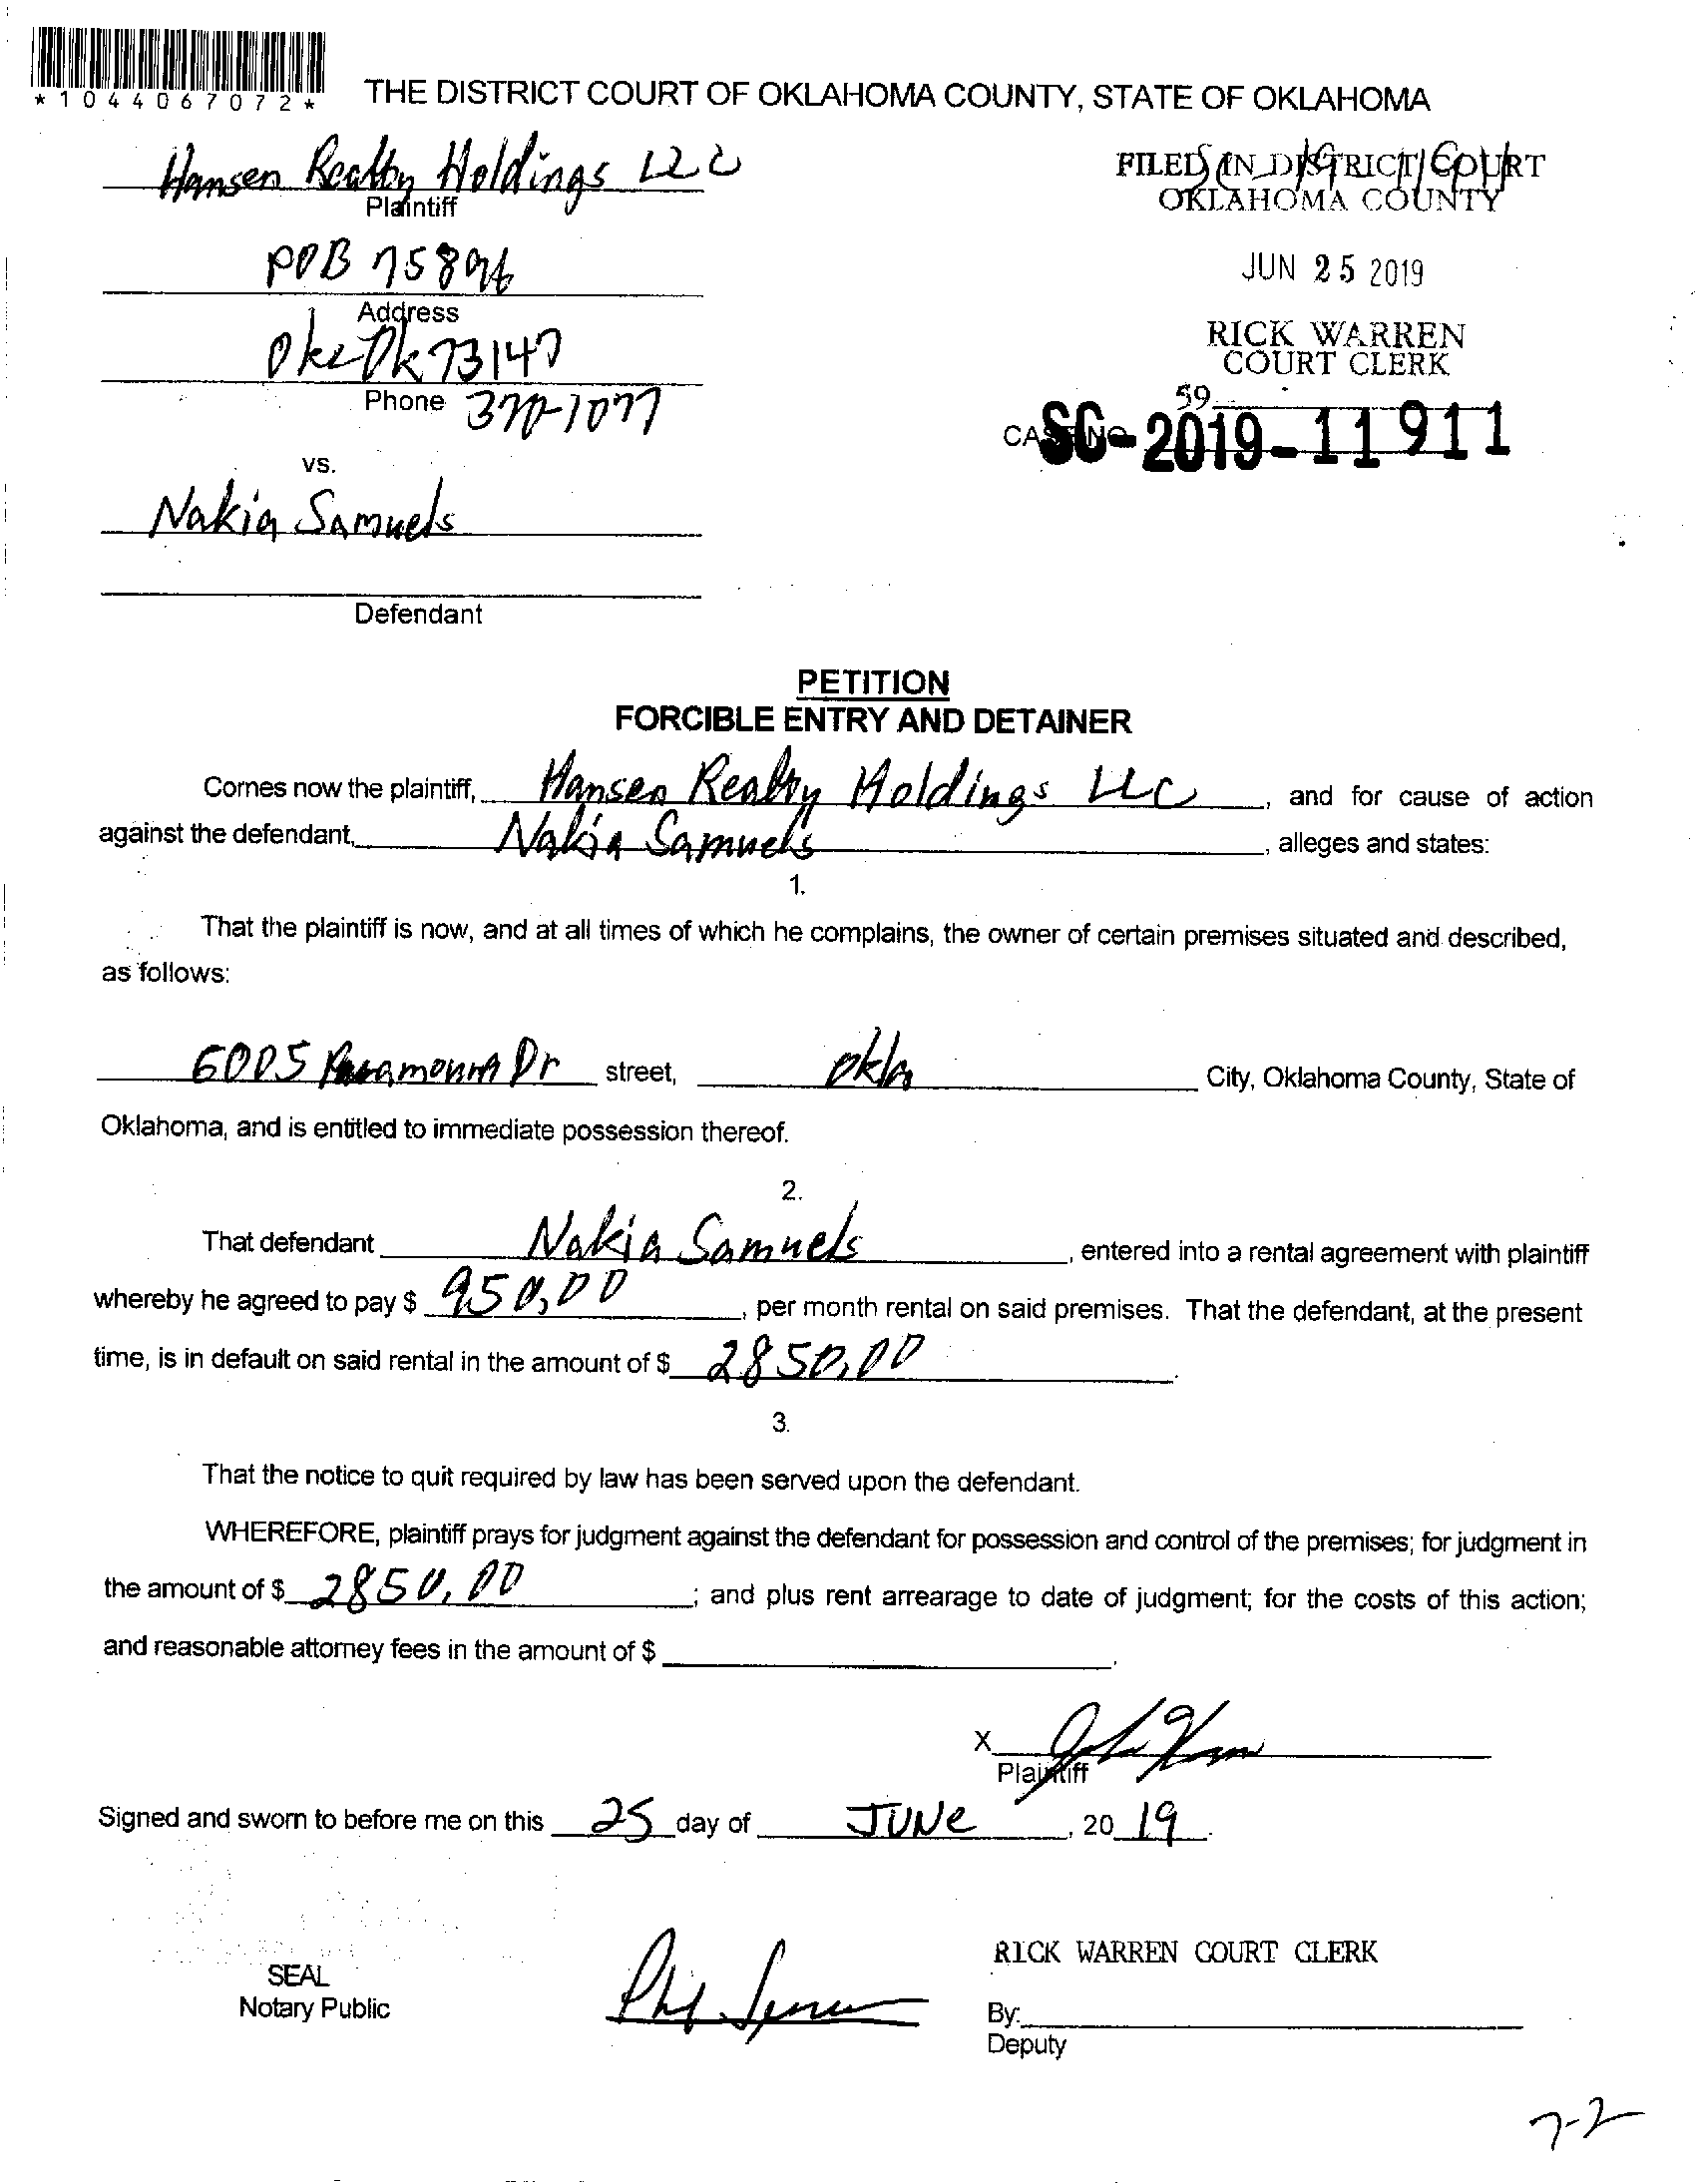 *1044067072*
THE DISTRICT COURT OF OKLAHOMA COUNTY, STATE OF OKLAHOMA
Hansen Realty Holdings LLC
Plaintiff
FILED IN DISTRICT COURT
OKLAHOMA COUNTY
POB 75896
Address
JUN 25 2019
Okc Ok 73147
RICK WARREN
COURT CLERK
Phone 370-1077
59
CASE NO. SC-2019-11911
vs.
Nakia Samuels
Defendant
PETITION
FORCIBLE ENTRY AND DETAINER
Comes now the plaintiff, Hansen Realty Holdings LLC, and for cause of action
against the defendant, Nakia Samuels, alleges and states:
1.
That the plaintiff is now, and at all times of which he complains, the owner of certain premises situated and described,
as follows:
6005 Paramount Dr street, Okla City, Oklahoma County, State of
Oklahoma, and is entitled to immediate possession thereof.
2.
That defendant Nakia Samuels, entered into a rental agreement with plaintiff
whereby he agreed to pay $ 950.00, per month rental on said premises. That the defendant, at the present
time, is in default on said rental in the amount of $ 2850.00.
3.
That the notice to quit required by law has been served upon the defendant.
WHEREFORE, plaintiff prays for judgment against the defendant for possession and control of the premises; for judgment in
the amount of $ 2850.00; and plus rent arrearage to date of judgment; for the costs of this action;
and reasonable attorney fees in the amount of $ .
X
Plaintiff
Signed and sworn to before me on this 25 day of JUNe, 20 19.
RICK WARREN COURT CLERK
SEAL
Notary Public
By:
Deputy
7-2